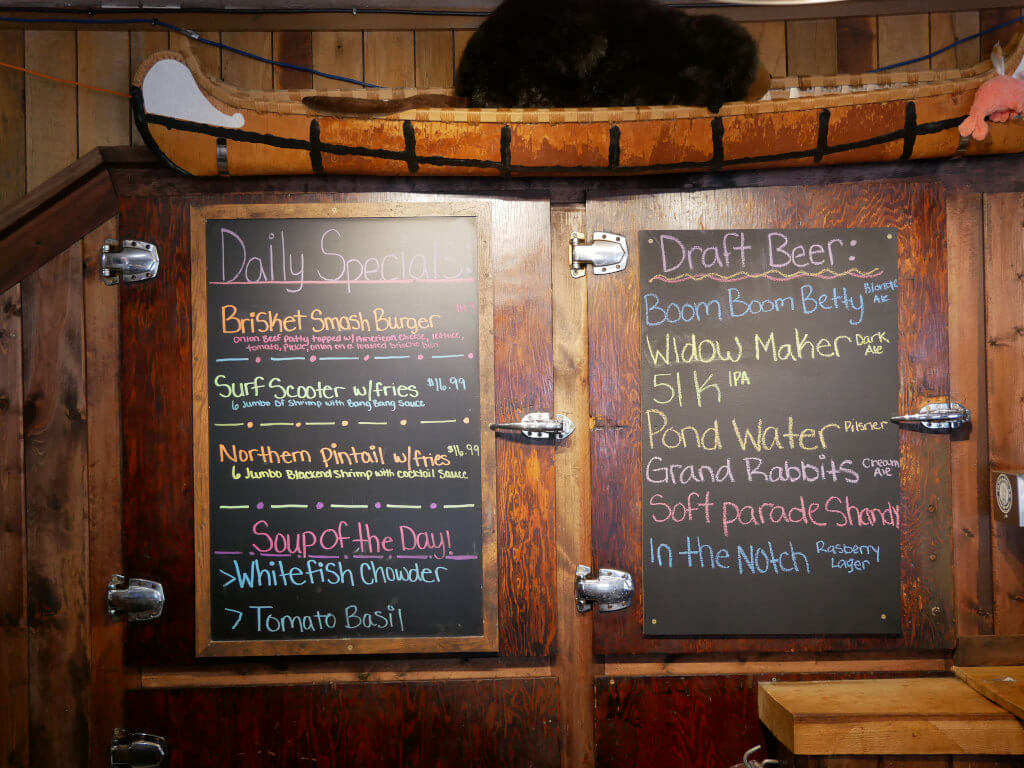 Daily Specials:
Brisket Smash Burger
onion Beef Patty topped w/ American cheese, lettuce,
tomato, Pickle, onion on a toasted brioche bun
Surf Scooter w/fries $16.99
6 Jumbo DF Shrimp with Bang Bang Sauce
Northern Pintail w/fries $16.99
6 Jumbo Blackend Shrimp with cocktail Sauce
Soup of the Day!
>Whitefish Chowder
> Tomato Basil
Draft Beer:
Boom Boom Betty Blonde Ale
Widow Maker Dark Ale
51K IPA
Pond Water Pilsner
Grand Rabbits Cream Ale
Soft parade Shandy
In the Notch Rasberry Lager